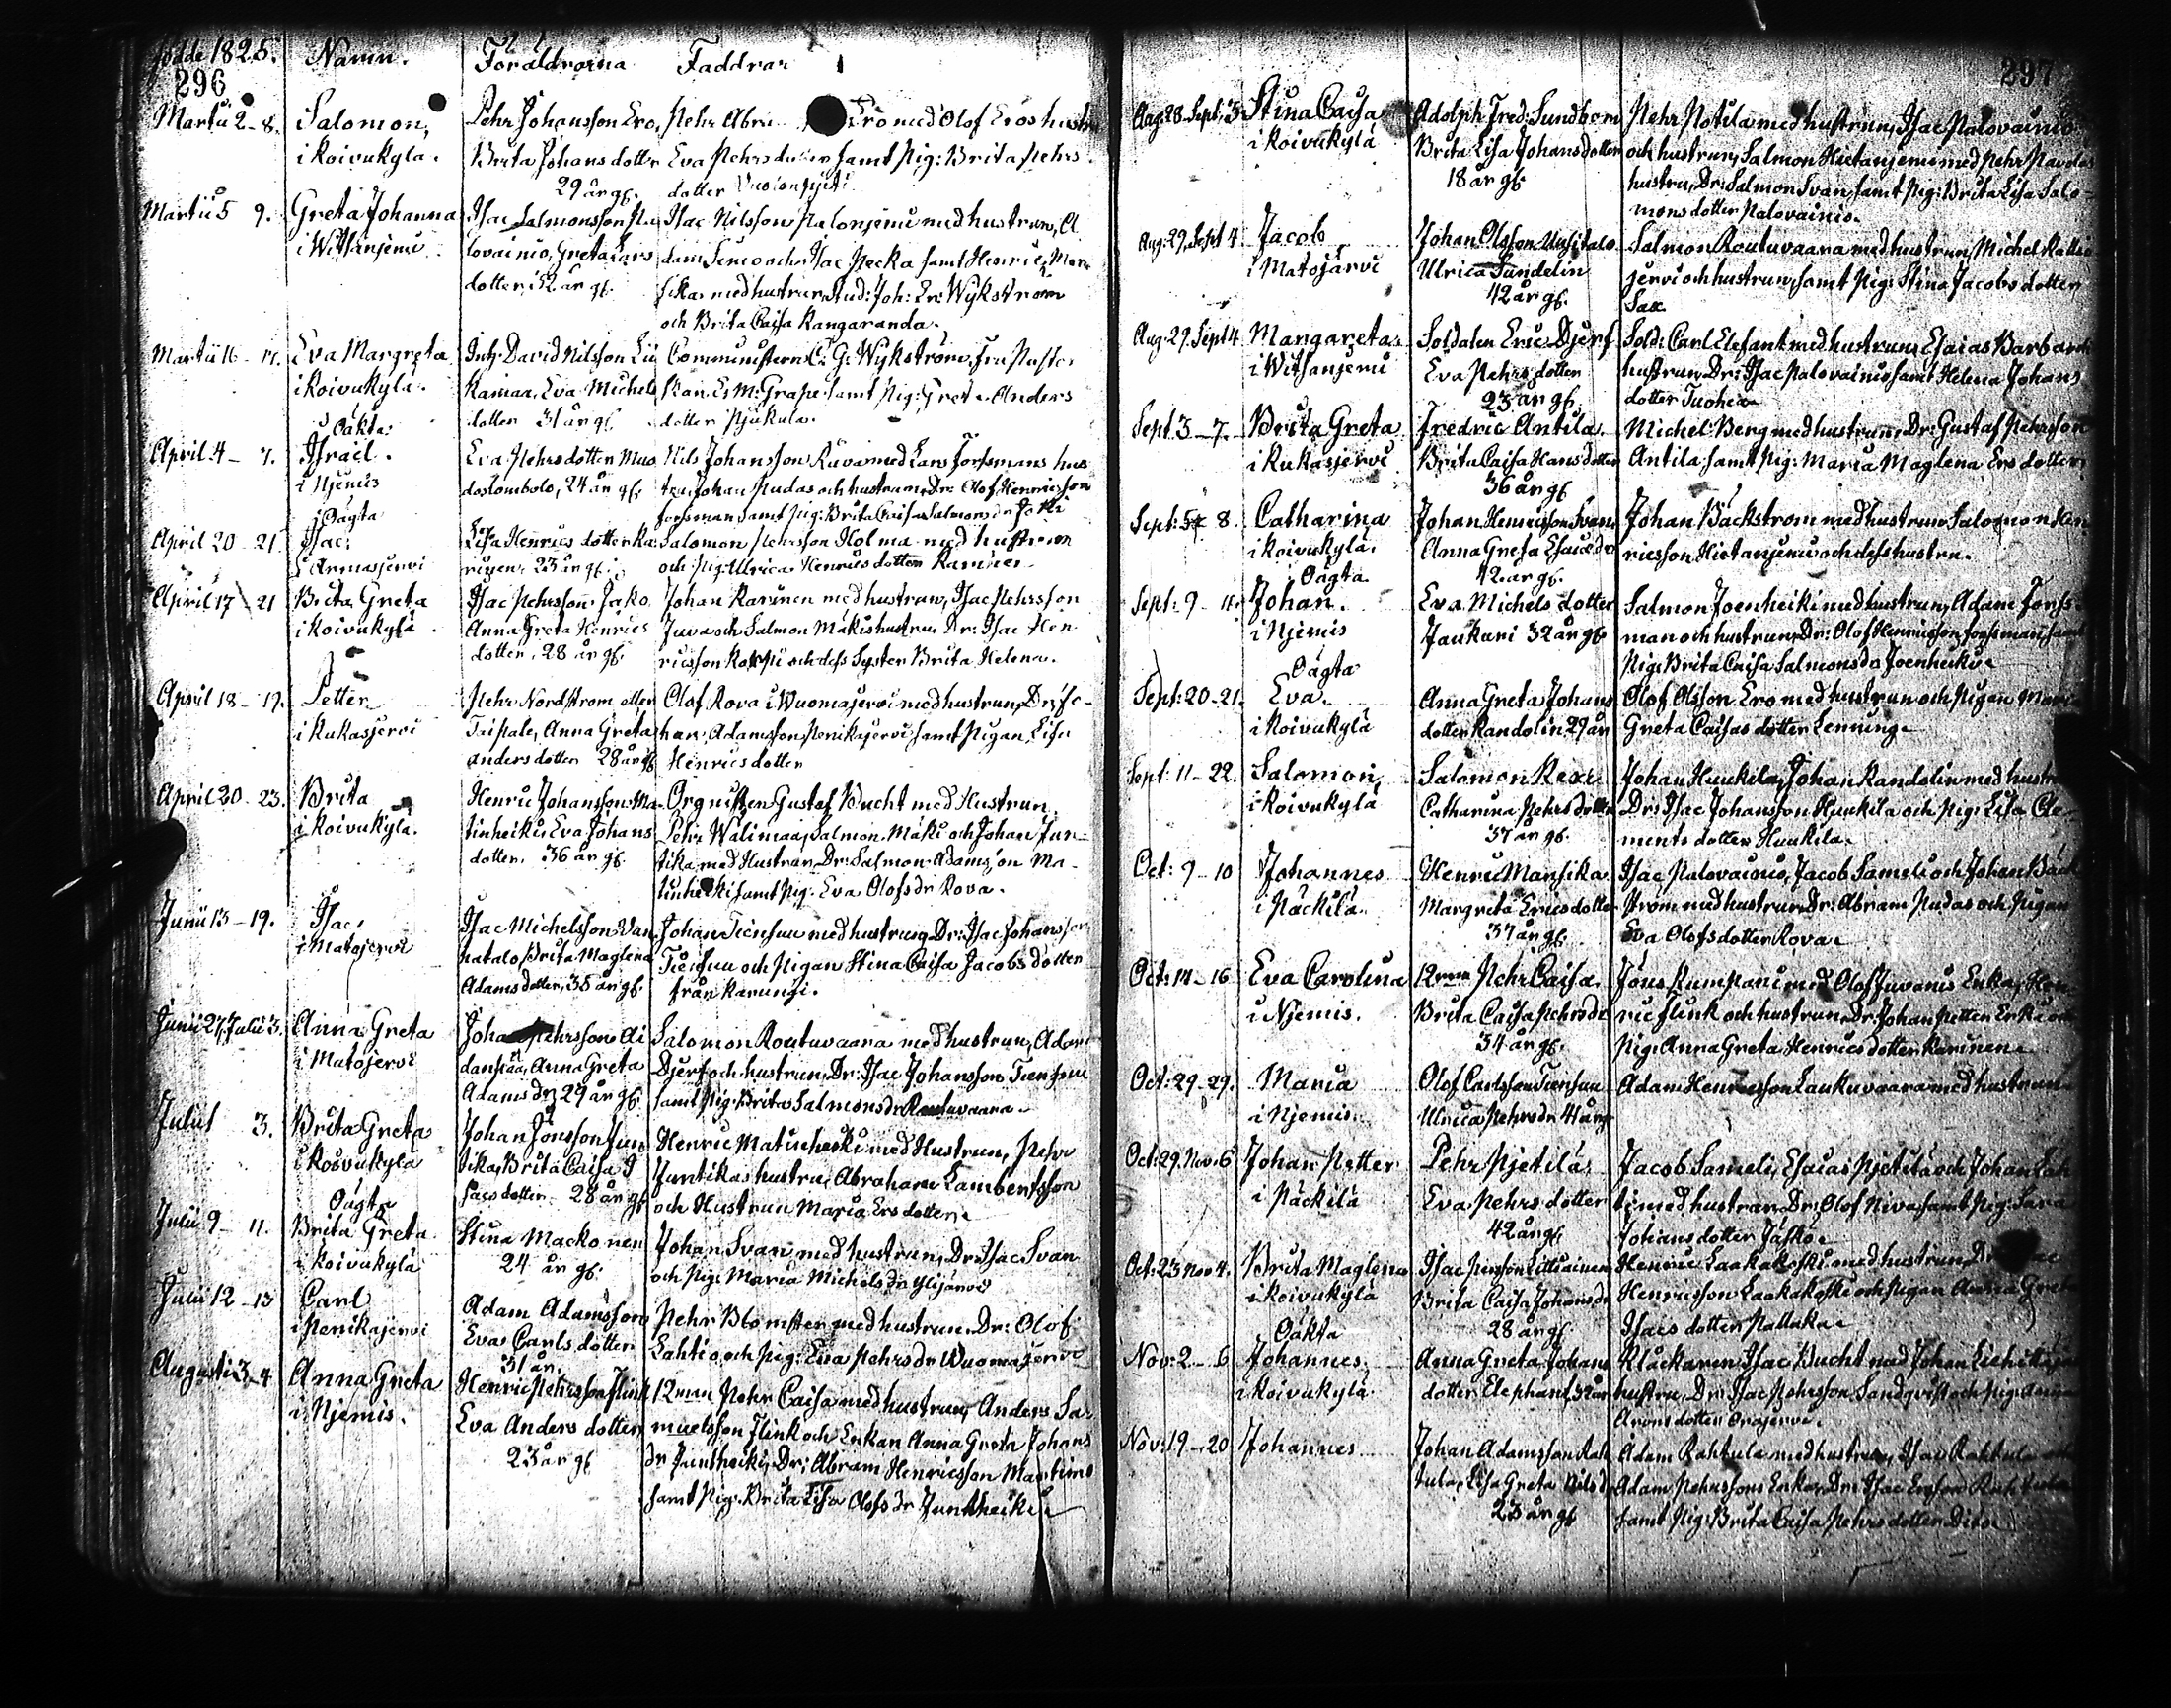 födde 1825. Namn. Föräldrarna Faddrar
296
Martii 2-8. Salomon, Pehr Johansson Ero, Pehr Abra Ero med Olof Eros hustru
i Koivukylä. Brita Johans dotter Eva Pehrs dotter samt Pig: Brita Pehrs
29 år gl. dotter
Martii 5 9. Greta Johanna Isac Salmonsson Pa Isac Nilsson Palonjemi med hustrun, A
i Witsanjemi lovainio, Greta Lars dam Simo och Isac Pecka samt Henric Man
dotter, 32 år gl. sika med hustrun, Stud: Joh: Er: Wykström
och Brita Caisa Kangaranda.
Martii 16 - 17. Eva Margreta David Nilsson Comministern C: G: Wykström, Fru Pasto
i Koivukylä. Kainaa, Eva Michels skan E: M: Grape samt Pig: Greta Anders
dotter 31 år gl. dotter
Oäkta
April 4 - 7. Israel. Eva Pehrs dotter Muo Nils Johansson med Lars Forssmans hus
i Njemis doslombolo, 24 år gl. tru, Johan Pudas och hustrun, Dr: Olof Henricsson
forssman samt Pig: Brita Caisa Salmons dr
Oägta
April 20 - 21. Isac, Lisa Henrics dotter Ka Salomon Pehrsson Holma med hustrun
i Armasjervi rinen, 23 år gl. och Pig: Ulrica Henrics dotter Karinen
April 17 - 21 Brita Greta Isac Pehrsson Jako Johan Karinen med hustrun, Isac Pehrsson
i Koivukylä. Anna Greta Henrics Juva och Salmon Mäkis hustru Dr: Isac Hen
dotter, 28 år gl. ricsson och dess Syster Brita Helena.
April 18 - 19. Petter Pehr Nordström eller Olof Rova i Wuomajervi med hustrun, Dr: Jo
i Kukasjervi Taipale, Anna Greta han Adamsson Penikajervi samt Pigan Lisa
anders dotter 28 år gl. Henrics dotter
April 20 - 23. Brita Henric Johansson Ma Orgnisten Gustaf Bucht med Hustrun,
i Koivukylä. tinheiki, Eva Johans Pehr Wälimaa, Salmon Mäki och Johan Jun
dotter. 36 år gl. tika med Hustrur, Dr: Salmon Adamsson Ma
tinheiki samt Pig: Eva Olofs dr Rova.
Junii 13 - 19. Isac, Isac Michelsson Van Johan Tiensuu med hustrun, Dr: Isac Johansson
i Matojervi hatalo, Brita Maglena Tiensuu och Pigan Stina Caisa Jacobs dotter
Adams dotter, 35 år gl. från Karungi.
Junii 27, Julii 3. Anna Greta Johan Pehrsson Ai Salomon Routuvaara med hustrun, Adam
i Matojervi danpää, Anna Greta Djerf och hustrun, Dr: Isac Johansson Tiensuu
Adams dr 29 år gl. samt Pig: Brita Salmons dr Routuvaara.
Julii 1 3. Brita Greta Johan Jönsson Jun Henric Matinheiki med Hustrun, Pehr
i Koivukylä tika, Brita Caisa I Juntikas hustru, Abraham Lambertsson
sacs dotter 28 år gl. och Hustrun Maria Ers dotter
Oägta
Julii 9 - 11. Brita Greta Stina Mackonen Johan Svan med hustrun, Dr: Isac Svan
i Koivukylä 24 år gl. och Pig: Maria Michels dr Ylijärvi
Julii 12 - 13 Carl Adam Adamsson Pehr Blomster med hustrun. Dr: Olof
i Penikajervi Eva Carls dotter Lahti och Pig: Eva Pehrs dr Wuomajervi
31 år.
Augusti 3-4 Anna Greta Henric Pehrsson Flink 12man Pehr Caisa med hustrun, Anders Sa
i Njemis. Eva Anders dotter muelsson Flink och Enkan Anna Greta Johans
23 år gl. dr Juntheiki, Dr: Abram Henricsson Martimo
samt Pig: Brita Lisa Olofs dr Juntheiki
297
Aug: 28 Sept: 3 Stina Caisa Adolph Fred: Sundbom Pehr Potila med hustrun, Isac Palovainio
i Koivukylä Brita Lisa Johans dotter och hustrun, Salmon Hietanjemi med Pehr
18 år gl. hustru, Dr: Salmon Svan, samt Pig: Brita Lisa Salo
mons dotter Palovainio.
Aug: 29, Sept 4 Jacob Johan Olsson Uusitalo Salmon Routuvaara med hustrun, Michel
i Matojärvi Ulrica Sundelin jervi och hustrun, samt Pig: Stina Jacobs dotter
42 år gl. Sax
Aug: 29. Sept 4 Margareta Soldaten Eric Djerf Sold: Carl Elefant med hustrun, Esaias Barbar
i Witsanjemi Eva Pehrs dotter hustrun, Dr: Isac Palovainio samt Helena Johans
23 år gl. dotter Tuohi
Sept: 3 - 7. Brita Greta Fredric Antila. Michel Berg med hustrun, Dr: Gustaf Pehrsson
i Kukasjervi Brita Caisa Hans dotter Antila samt Pig: Maria Maglena Ers dotter
36 år gl.
Sept: 5 8 Catharina Johan Henricsson Svan Johan Bäckström med hustrun Salomon Hen
i Koivukylä. Anna Greta Esaiæ dr ricsson Hietanjemi och dess hustru.
42 år gl.
Oägta.
Sept: 9 - 11. Johan. Eva Michels dotter Salmon Joenheiki med hustrun, Adam Forss
i Njemis Jaukuri 32 år gl. man och hustrun, Dr: Olof Henricsson forssman, samt
Pig: Brita Caisa Salmons dr Joenheiki
Oägta
Sept: 20 - 21. Eva Anna Greta Johans Olof Olsson Ero med hustrun och Pigan Maria
i Koivukylä dotter Randolin 29 år Greta Caisas dotter Lenning
Sept: 11 - 22. Salomon Salomon Johan Huukila, Johan Randolin med hustru
i Koivukylä Catharina Pehrs dotter Dr: Isac Johansson Huukila och Pig: Lisa Cle
37 år gl. ments dotter Huukila.
Oct: 9 - 10 Johannes Henric Mansika Isac Palovainio, Jacob Sameli och Johan Bäck
i Päckilä. Margreta Erics dotter ström med hustrur, Dr: Abram Pudas och Pigan
37 år gl. Eva Olofs dotter Rova
Oct: 14 - 16 Eva Carolina 12man Pehr Caisa. Jöns Kumpani med Olof Juvanis Enka, Hen
i Njemis. Brita Caisa Pehrs dr ric flink och hustrun, Dr: Johan Petter
34 år gl. Pig: Anna Greta Henrics dotter Karinen
Oct: 29 - 29. Maria Olof Carlsson Tiensuu Adam Henricsson Laukuvaara med hustrun
i Njemis. Ulrica Pehrs dr 41 år gl
Oct: 29. Nov: 6 Johan Petter Pehr Pjetilä Jacob Sameli, Esaias Pjetilä och Johan Lah
i Päckilä Eva Pehrs dotter ti med hustrur, Dr: Olof Niva, samt Pig: Sara
42 år gl. Johans dotter Jäskö
Oct: 23 Nov 4. Brita Maglena Isac Persson Henric Laakakoski med hustrun, Dr
i Koivukylä Brita Caisa Johans dr Henricsson Laakakoski och Pigan Anna Greta
28 år gl. Isacs dotter Pallaka
Oäkta
Nov: 2 - 6 Johannes Anna Greta Johans Klåckaren Isac Bucht med Johan
i Koivukylä dotter Elephant, 32 år hustru, Dr: Isac Pehrsson Sandqvist och Pig: Anna
Arons dotter Orajervi.
Nov: 19 - 20 Johannes Johan Adamsson Rah Adam Rahtula med hustrun, Isac Rahtula
tula, Lisa Greta Nils dr Adam Pehrssons Enka, Dr: Isac Ersson Rahtula
23 år gl samt Pig: Brita Caisa Pehrs dotter Dito